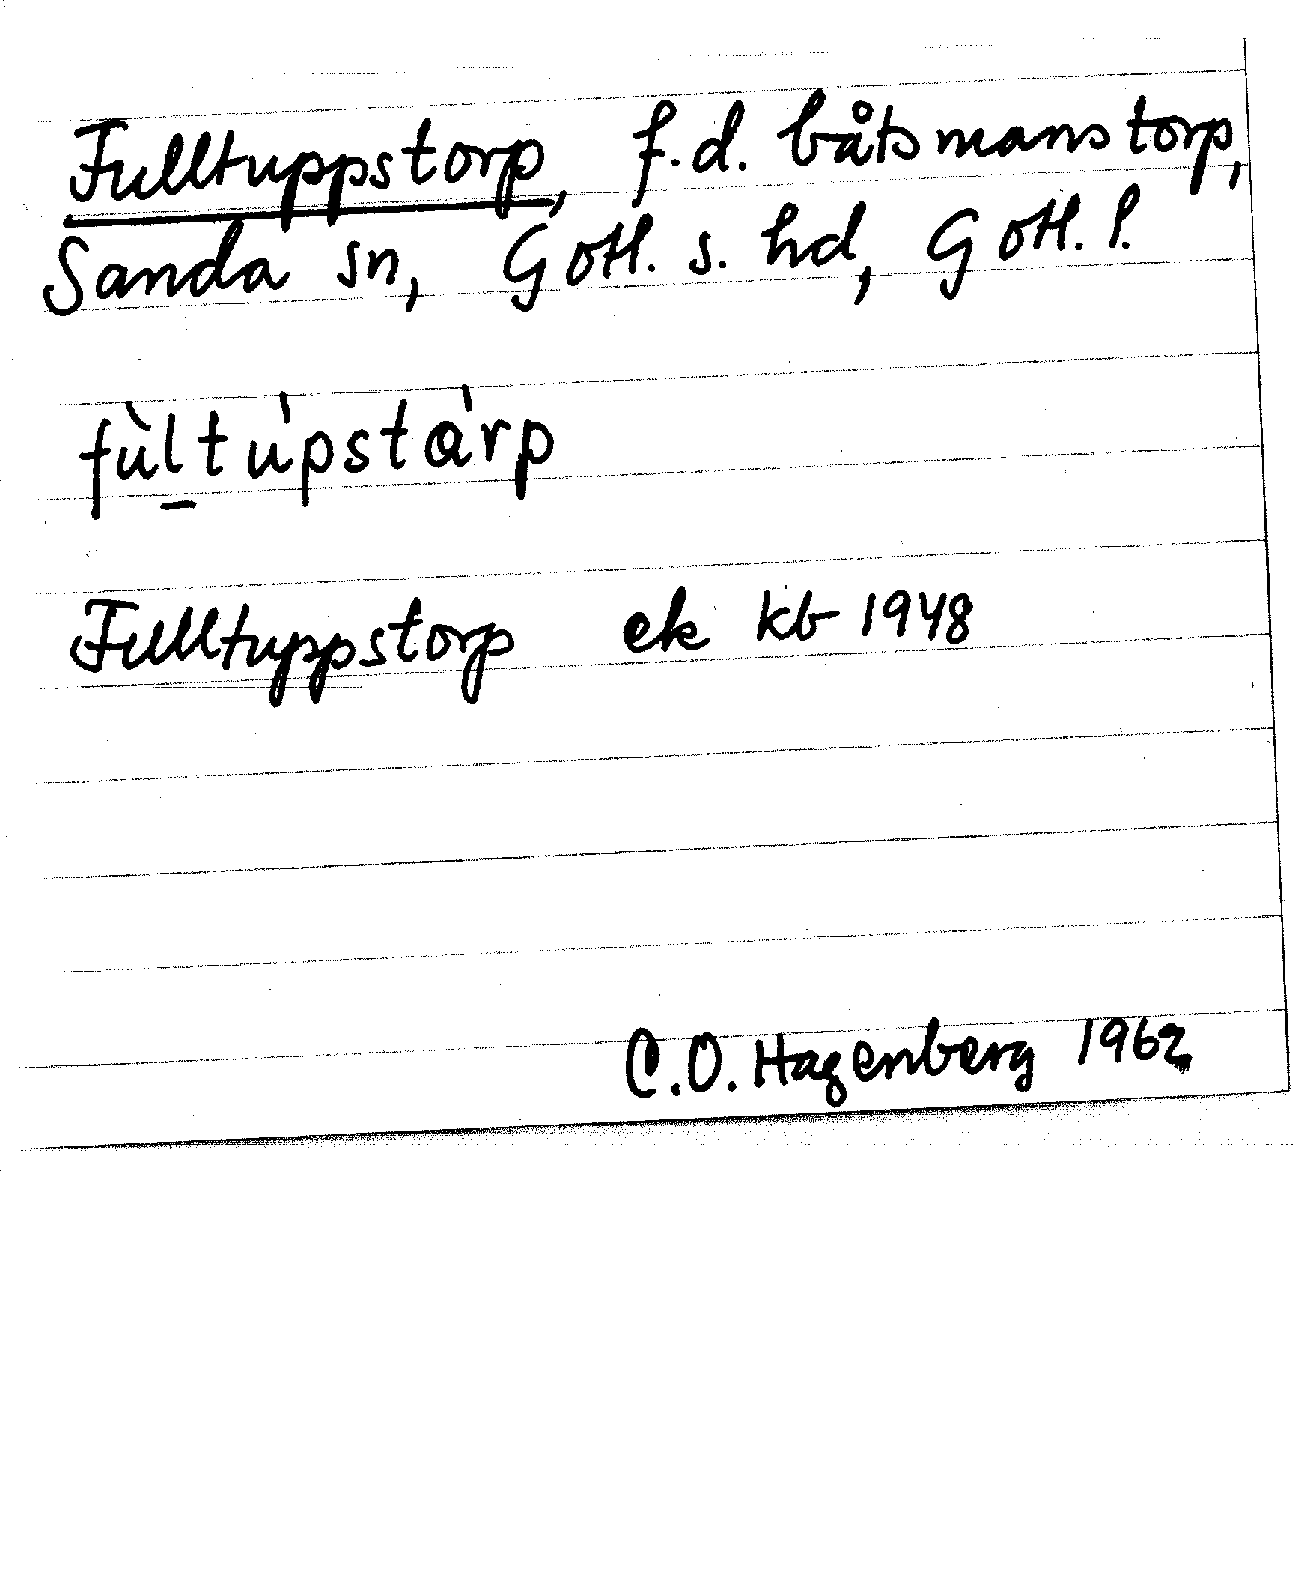 Fulltuppstorp, f.d. båtsmanstorp,
Sanda sn, Gotl. s. hd, Gotl. l.
fùl̠tu̍pstɑ̍rp
Fulltuppstorp ek kb 1948
C.O. Hagenberg 1962